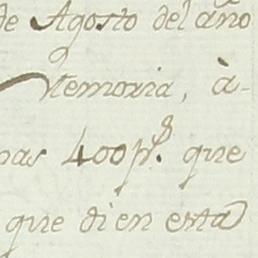 de Agosto del año
Memoria, à-
nas 400 p.s que
que di en esta